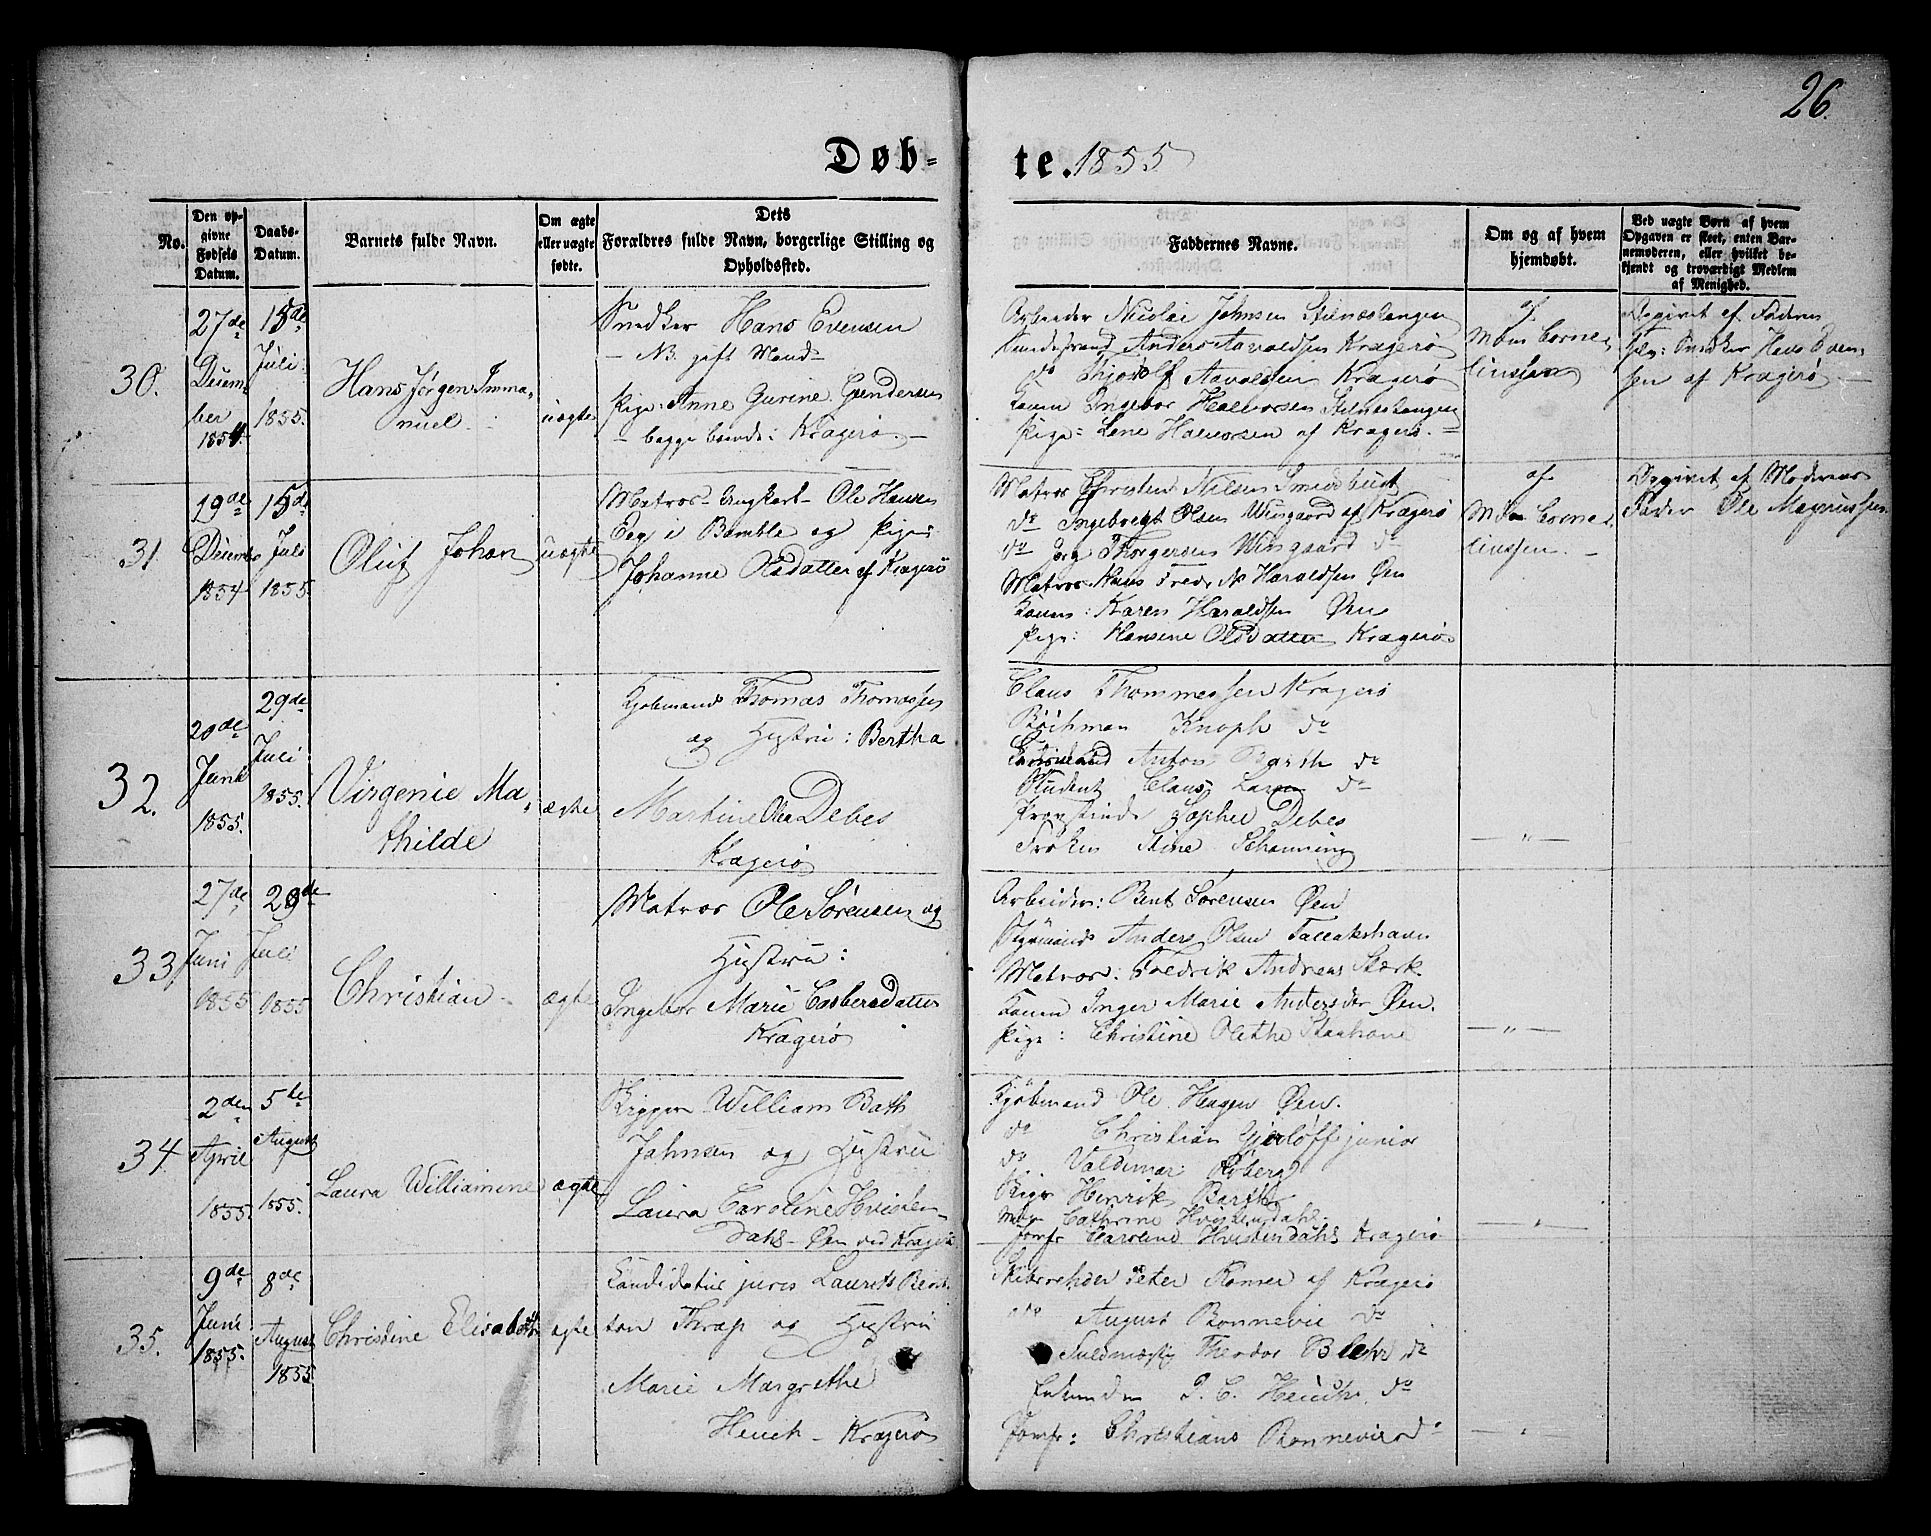 26.
Døb-
te. 1855
No.
Den op-
givne
Fødsels
Datum.
Daabs-
Datum.
Barnets fulde Navn.
Om ægte
eller uægte
fødte.
Dets
Forældres fulde Navn, borgerlige Stilling og
Opholdssted.
Faddernes Navne.
Om og af hvem
hjemdøbt.
Ved uægte Børn af hvem
Opgaven er skeet, enten Bar-
nemoderen, eller hvilket be-
kjendt og troværdigt Medlem
af Menighed.
30.
27de
Decem-
ber
1854.
15de
Juli
1855.
Hans Jörgen Imma-
nuel
uægte
Snedker Hans Evensen
NB. gift Mand
Pige: Anne Gurine Gundersen
begge boende i Kragerø.
Arbeider Nicolai Johnsen Stilnestangen
Anders Aavaldsen Kragerø
do Thjodolf Aavaldsen Kragerø
Konen Ingebor Halvorsen Stilnestangen
Pige: Lene Halvorsen af Kragerø.
af
Mdm Corne-
liussen
Opgivet af Faderen
Selv: Snedker Hans Even-
sen af Kragerø
31.
19de
Decembr
1854
15de
Juli
1855.
Oluf Johan
uægte
Matros Ungkarl Ole Hansen
Eeg i Bamble og Pigen
Johanne Olsdatter af Kragerø
Matros Christen Nilsen Smedsbugt
do Ingebregt Olsen Wiisgaard af Kragerø
do Jørg Thorgersen Wiisgaard do
Matros Hans Fredr. N. Haraldsen Øen
Konen: Karen Haraldsen Øen
Pige: Hansine Olsdatter Kragerø
af
Mdm Corne-
liussen.
Opgivet af Moderens
Fader Ole Magnussen
32.
20de
Juni
1855.
29de
Juli
1855.
Virgenie Ma-
thilde
ægte
Kjøbmand Thomas Thomassen
og Hustru: Bertha
Martine Olea Debes
Kragerø
Claus Thommessen Kragerø
Knoph do
Anton Barth do
Student Claus Larsen do
Provstinde Sophie Debes
Frøken Stine Schanning
— " —
33.
27de
Juni
1855
29de
Juli
1855
Christian
ægte
Matros Ole Sørensen og
Hustru:
Ingebor Marie Casbersdatter
Kragerø
Arbeider: Bent Sørensen Øen
Styrmand Anders Olsen Tallakshavn
Matros: Fredrik Andreas Stærk
Konen Inger Marie Andersdtr Øen.
Pige: Christine Olethe
— " —
34.
2den
April
1855.
5te
August
1855.
Laura Williamine
ægte
Rigger William Bath
Jahnsen og Hustru
Laura Caroline Hvisten-
dahl Øen ved Kragerø
Kjøbmand Ole Heagen Øen.
do Christian Gjerløff junior
do Valdemar
Henrik Barth
Cathrine Hvistendahl
Jomfr Caroline Hvistendahl Kragerø
— " —
35.
9de
Juni
1855.
8de
August
1855
Christine Elisabeth
ægte
Candidatus juris Laurits Bent-
zon Thrap og Hustru
Marie Margrethe
Heuch Kragerø
Skibsreder Peter Rømer af Kragerø
do August Bonnevie do
Fuldmægtig Theodor Blehr do
P. C. Heuch do
Jomfr: Christiane Bonnevie do
— " —